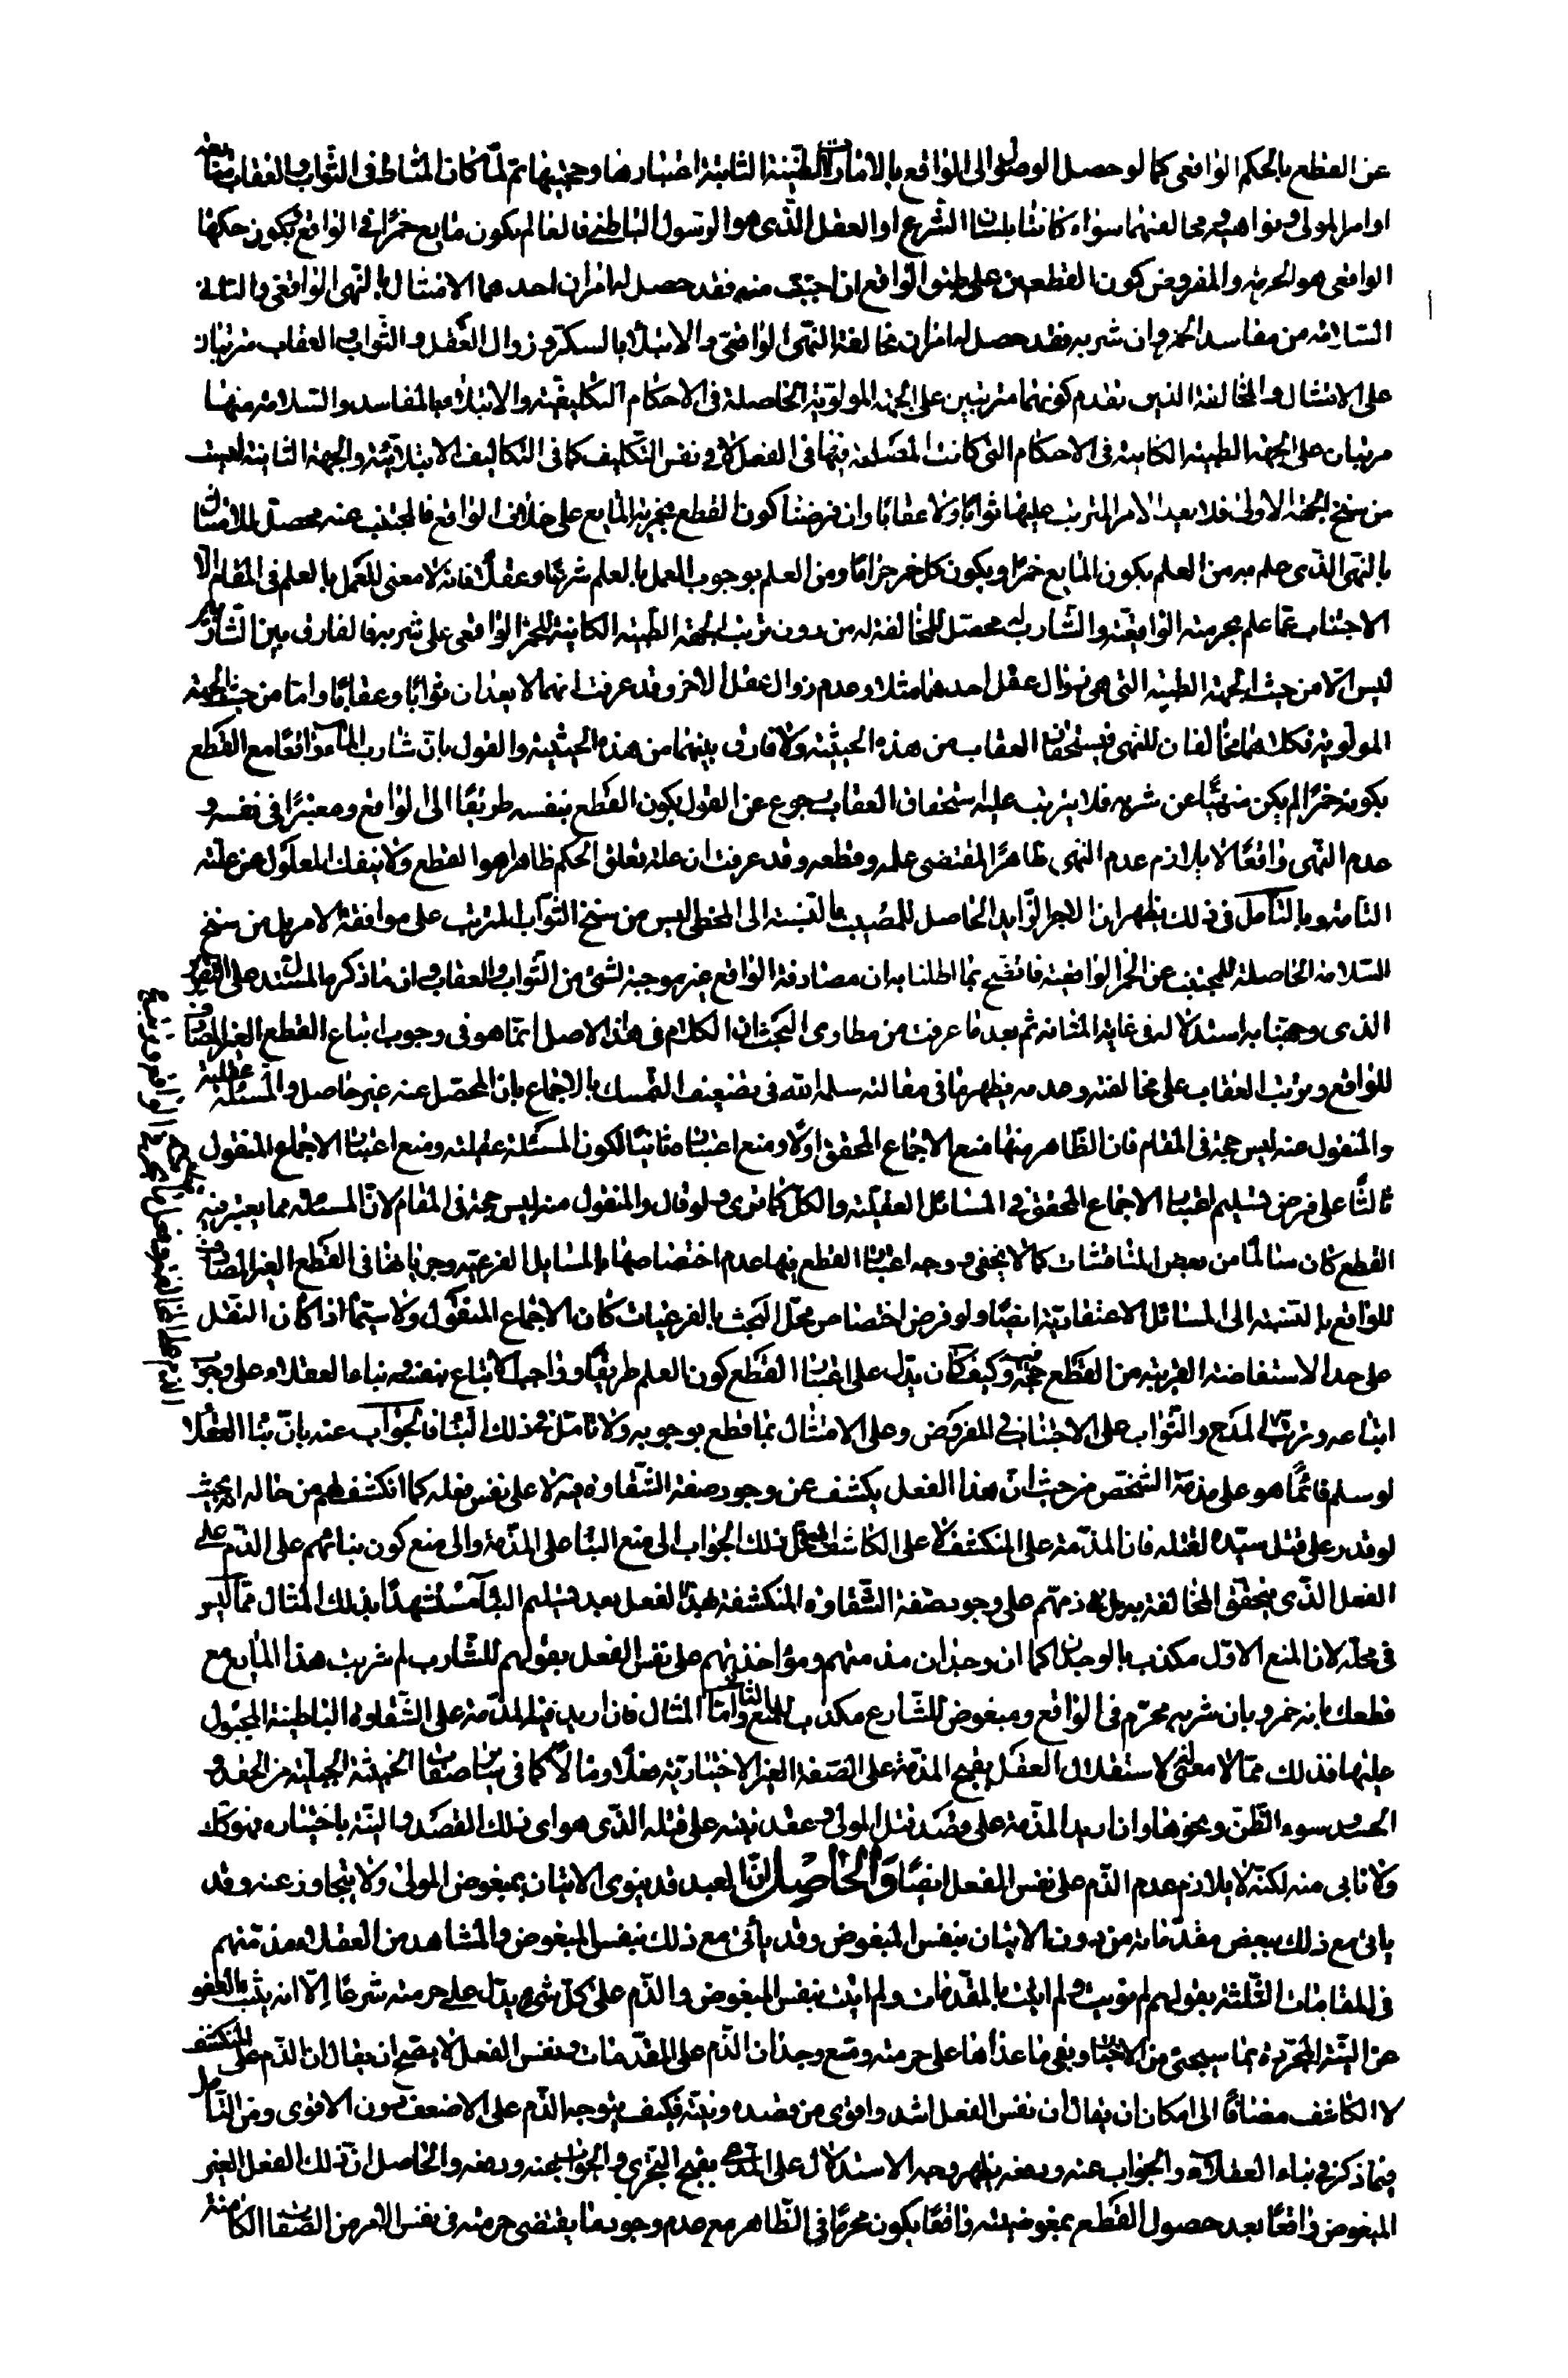 عن القطع بالحكم الواقعى كما لو حصل الوصول الى الواقع بالامارات الظنية الثابتة اعتبارها وحجيتها ثم لما كان المناط فى الثواب والعقاب
اوامر المولى ونواهيه ومخالفتهما سواء كانتا بلسان الشرع او العقل الذى هو الرسول الباطنى فالعالم بكون مايع خمرا فى الواقع يكون حكمها
الواقعى هو الحرمة والمفروض كون القطعين على طبق الواقع ان اجتنب منه فقد حصل له امران احدهما الامتثال بالنهى الواقعى والثانى
السلامة من مفاسد الخمر وان شربه فقد حصل له امران مخالفة النهى الواقعى والابتلاء بالسكر وزوال العقل والثواب والعقاب مترتبان
على الامتثال والمخالفة الذين تقدم كونهما مترتبين على الجهة المولوية الحاصلة فى الاحكام التكليفية والابتلاء بالمفاسد والسلامة منها
مرتبان على الجهة الطبية الكامنة فى الاحكام التى كانت المصلحة فيها فى الفعل لا فى نفس التكليف كما فى التكاليف الابتلائية والجهة الثانية ليست
من سنخ الجهة الاولى فلا يعيد الامر المترتب عليها ثوابا ولا عقابا وان فرضنا كون القطع بخمرية المايع على خلاف الواقع فالمجتنب عنه محصل للامتثال
بالنهى الذى علم به من العلم بكون المايع خمرا وبكون كل خمر حراما ومن العلم بوجوب العمل بالعلم شرعا وعقلا فانه لا معنى للعمل بالعلم فى المقام الا
الاجتناب عما علم بحرمته الواقعية والشارب له محصل للمخالفة له من دون ترتب الجهة الطبية الكامنة للخمر الواقعى على شربه فالفارق بين الشاربين
ليس الا من حيث الجهة الطبية التى هى زوال عقل احدهما مثلا وعدم زوال عقل الاخر وقد عرفت انهما لا يعدان ثوابا وعقابا واما من حيث الجهة
المولوية فكلاهما مخالفان للنهى فيستحقان العقاب من هذه الحيثية ولا فارق بينهما من هذه الحيثية والقول بان شارب الماء واقعا مع القطع
بكونه خمرا لم يكن منهيا عن شربه فلا يترتب عليه استحقاق العقاب رجوع عن القول بكون القطع بنفسه طريقا الى الواقع ومعتبرا فى نفسه و
عدم النهى واقعا لا يلازم عدم النهى ظاهرا المقتضى علمه وقطعه وقد عرفت ان علة تعلق الحكم ظاهرا هو القطع ولا ينفك المعلول عن علته
التامة وبالتامل فى ذلك يظهر ان الاجر الزايد الحاصل للمصيب بالنسبة الى المخطى ليس من سنخ الثواب المترتب على موافقة الامر بل من سنخ
السلامة الحاصلة للمجتنب عن الخمر الواقعية فاتضح بما اطلنا به ان مصادفة الواقع غير موجبة لشئ من الثواب والعقاب وان ما ذكره المستدل على
الذى وجهنا به استدلاله فى غاية المتانة ثم بعد ما عرفت من مطاوى البحث ان الكلام فى هذا الاصل انما هو فى وجوب اتباع القطع الغير المصادف
للواقع وترتب العقاب على مخالفته وعدمه يظهر ما فى مقالته سلمه الله فى تضعيف التمسك بالاجماع بان المحصل عنه غير حاصل والمسئلة عقلية
والمنقول منه ليس حجة فى المقام فان الظاهر منها منع الاجماع المحقق اولا ومنع اعتباره ثانيا لكون المسئلة عقلية ومنع اعتبار الاجماع المنقول
ثالثا على فرض تسليم اعتبار الاجماع المحقق فى المسائل العقلية والكل كما ترى ولو قال والمنقول منه ليس حجة فى المقام لان المسئلة مما يعتبر فيه
القطع كان سالما من بعض المناقشات كما لا يخفى ووجه اعتبار القطع فيها عدم اختصاصها بالمسايل الفرعية وجريانها فى القطع الغير المصادف
للواقع بالنسبة الى المسائل الاعتقادية ايضا ولو فرض اختصاص محل البحث بالفرعيات كان الاجماع المنقول ولا سيما اذا كان النقل
على حد الاستفاضة القريبة من القطع حجة فيه وكيف كان يدل على اعتبار القطع كون العلم طريقا وواجب الاتباع بنفسه بناء العقلاء على وجوب
اتباعه وترتب المدح والثواب على الاجتناب فى المفروض وعلى الامتثال بما قطع بوجوبه ولا تامل فى ذلك البناء والجواب عنه بان بناء العقلاء
لو سلم فانما هو على مذمة الشخص من حيث ان هذا الفعل يكشف عن وجود صفة الشقاوة فيه لا على نفس فعله كما انكشف لهم من حاله انه بحيث
لو قدر على قتل سيده لقتله فان المذمة على المنكشف لا على الكاشف ذلك الجواب الى منع البناء على المذمة والى منع كون بنائهم على الذم على
الفعل الذى يتحقق المخالفة به بل ذمهم على وجود صفة الشقاوة المنكشفة بهذا الفعل بعد تسليم البناء مستشهدا بذلك المثال مما ليس
فى محله لان المنع الاول مكذب بالوجدان كما ان وجدان مذمتهم ومؤاخذتهم على نفس الفعل بقولهم للشارب لم شربت هذا المايع مع
قطعك بانه خمر وبان شربه محرم فى الواقع ومبغوض للشارع مكذب للمنع الثانى واما المثال فان اريد فيه المذمة على الشقاوة الباطنية المجبول
عليها فذلك مما لا معنى له لاستقلال العقل بقبح المذمة على الصفة الغير الاختيارية فعلا ومالا كما فى ساير الصفات الخبيثة الجبلية من الحقد و
الحسد وسوء الظن ونحوها وان اريد المذمة على قصد قتل المولى وعقد نيته على قتله الذى هو اى ذلك القصد والنية باختياره فهو كك
ولا نابى منه لكنه لا يلازم عدم الذم على نفس الفعل ايضا والحاصل ان العبد قد ينوى الاتيان بمبغوض المولى ولا يتجاوز عنه وقد
ياتى مع ذلك ببعض مقدماته من دون الاتيان بنفس المبغوض وقد ياتى مع ذلك بنفس المبغوض والمشاهد من العقلاء مذمتهم
فى المقامات الثلثة بقولهم لم نويت ولم اتيت بالمقدمات ولم اتيت بنفس المبغوض والذم على كل شئ يدل على حرمته شرعا الا انه يثبت العفو
عن النية المجردة بما سيجئ من الاخبار وبقى ما عداها على حرمته ومع وجدان الذم على المقدمات ونفس الفعل لا يصح ان يقال ان الذم على المنكشف
لا الكاشف مضافا الى امكان ان يقال ان نفس الفعل اشد واقوى من قصده ونيته فكيف يتوجه الذم على الاضعف دون الاقوى ومن التامل
فيما ذكر فى بناء العقلاء والجواب عنه ودفعه يظهر وجه الاستدلال على المدعى بقبح التجرى والجواب عنه ودفعه والحاصل ان ذلك الفعل الغير
المبغوض واقعا بعد حصول القطع بمبغوضيته واقعا يكون محرما فى الظاهر مع عدم وجود ما يقتضى حرمته فى نفس الامر من الصفات الكامنة